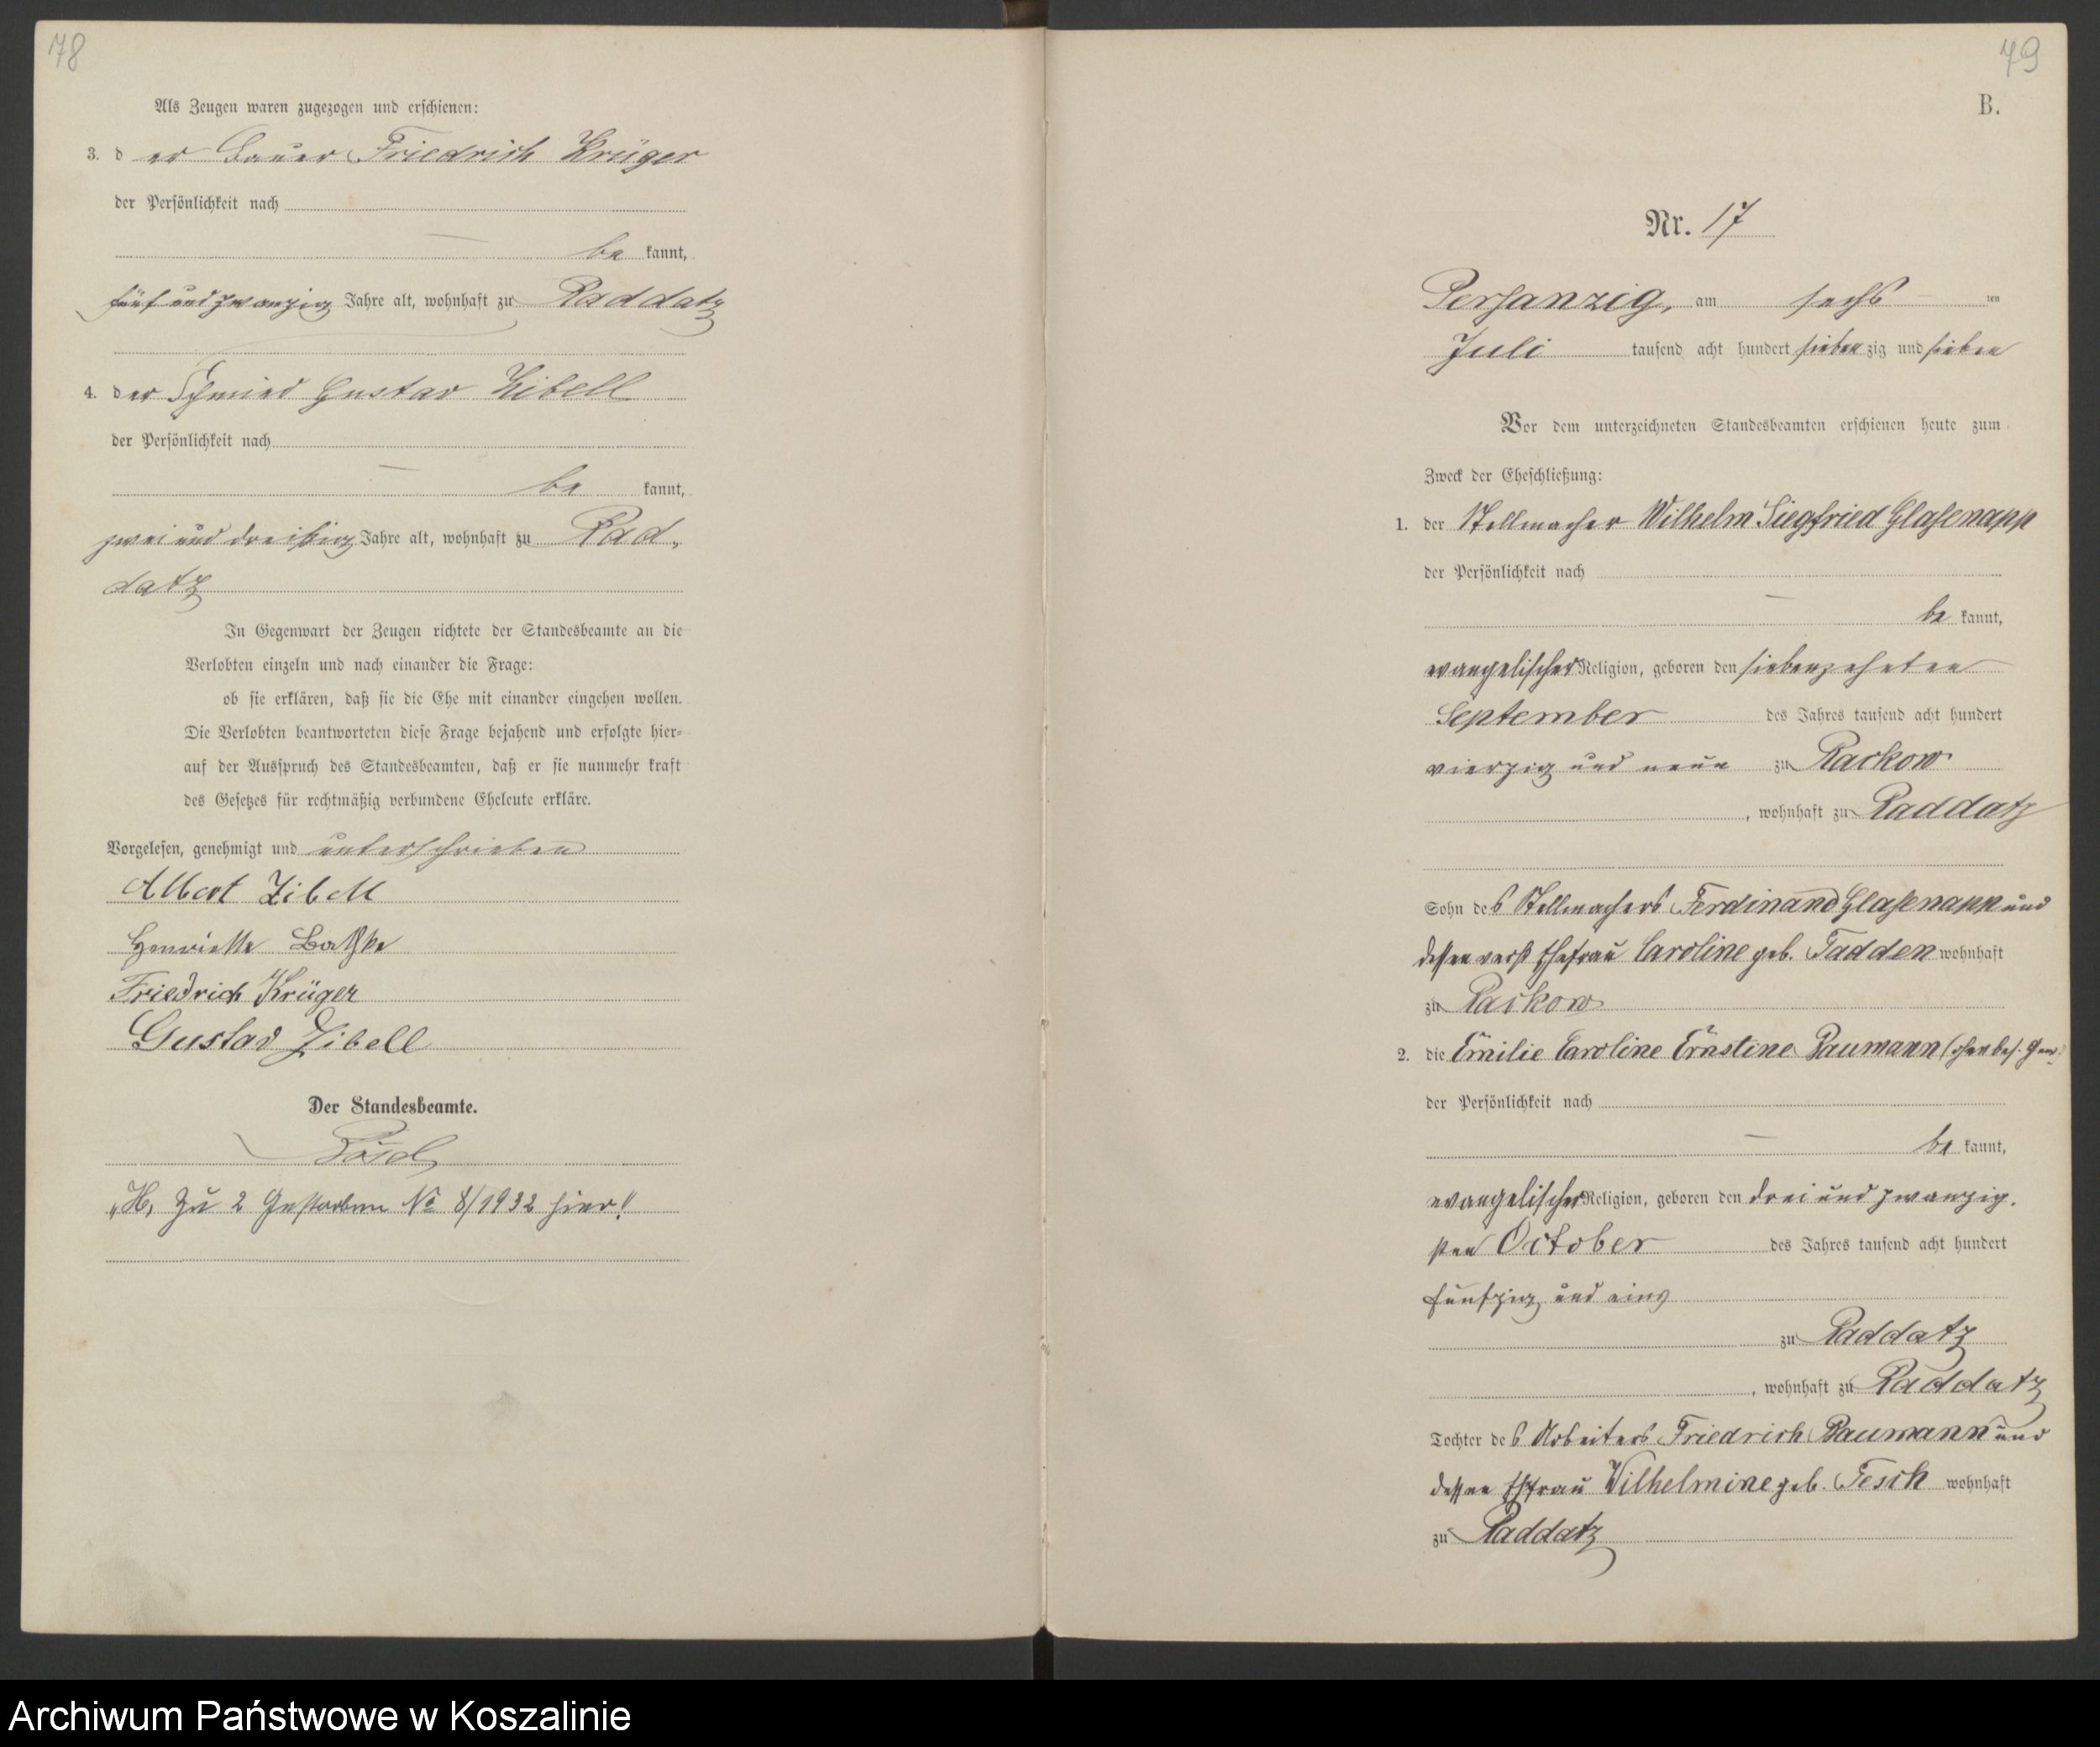 78
Als Zeugen waren zugezogen und erschienen:
3. d er Bauer Friedrich Krüger
der Persönlichkeit nach
— be kannt,
fünf und zwanzig Jahre alt, wohnhaft zu Raddatz
4. der Schmied Gustav Zibell
der Persönlichkeit nach
— be kannt,
zwei und dreißig Jahre alt, wohnhaft zu Rad-
datz
In Gegenwart der Zeugen richtete der Standesbeamte an die
Verlobten einzeln und nach einander die Frage:
ob sie erklären, daß sie die Ehe mit einander eingehen wollen.
Die Verlobten beantworteten diese Frage bejahend und erfolgte hier-
auf der Ausspruch des Standesbeamten, daß er sie nunmehr kraft
des Gesetzes für rechtmäßig verbundene Eheleute erkläre.
Vorgelesen, genehmigt und unterschrieben
Albert Zibell
Henriette
Friedrich Krüger
Gustav Zibell
Der Standesbeamte.
„H, Zu 2 Gestorben No 8/1932 hier!
79
B.
Nr. 17
Persanzig, am sechs ten
Juli tausend acht hundert sieben zig und sieben
Vor dem unterzeichneten Standesbeamten erschienen heute zum
Zweck der Eheschließung:
1. der Stellmacher Wilhelm Siegfried Glasenapp
der Persönlichkeit nach
— be kannt,
evangelischer Religion, geboren den siebenzehnten
September des Jahres tausend acht hundert
vierzig und neun zu Rackow
, wohnhaft zu Raddatz
Sohn des Stellmachers Ferdinand Glasenapp und
dessen verst Ehefrau Caroline geb. Tadden wohnhaft
zu Rackow
2. die Emilie Caroline Ernstine Baumann
der Persönlichkeit nach
— be kannt,
evangelischer Religion, geboren den drei und zwanzig-
sten October des Jahres tausend acht hundert
fünfzig und eins
zu Raddatz
, wohnhaft zu Raddatz
Tochter des Arbeiters Friedrich Baumann und
dessen Ehfrau Wilhelmine geb. Tesch wohnhaft
zu Raddatz
Archiwum Państwowe w Koszalinie